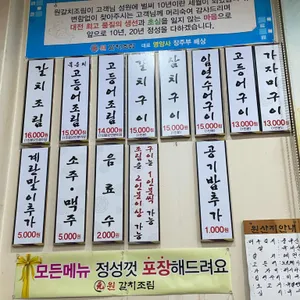 원갈치조림이 고객님 성원에 벌써 10년이란 세월이 흘렀습니다
변함없이 찾아주시는 고객님께 머리숙여 감사드리며
대전 최고 품질의 생선과 초심을 잃지 않는 마음으로
앞으로 10년, 20년 정진하겠습니다.
원 갈치조림 대표 영양사 장주부 배상
갈치조림
16,000원
묵은지 고등어조림
15,000원
고등어조림
14,000원
갈치구이
15,000원
삼치구이
14,000원
임연수어구이
13,000원
고등어구이
13,000원
가자미구이
13,000원
계란말이추가
5,000원
소주·맥주
5,000원
음료수
2,000원
구이는 1인분씩 가능
조림은 2인분이상 가능
공기밥추가
1,000원
원산지안내
모든메뉴 정성껏 포장해드려요
원 갈치조림